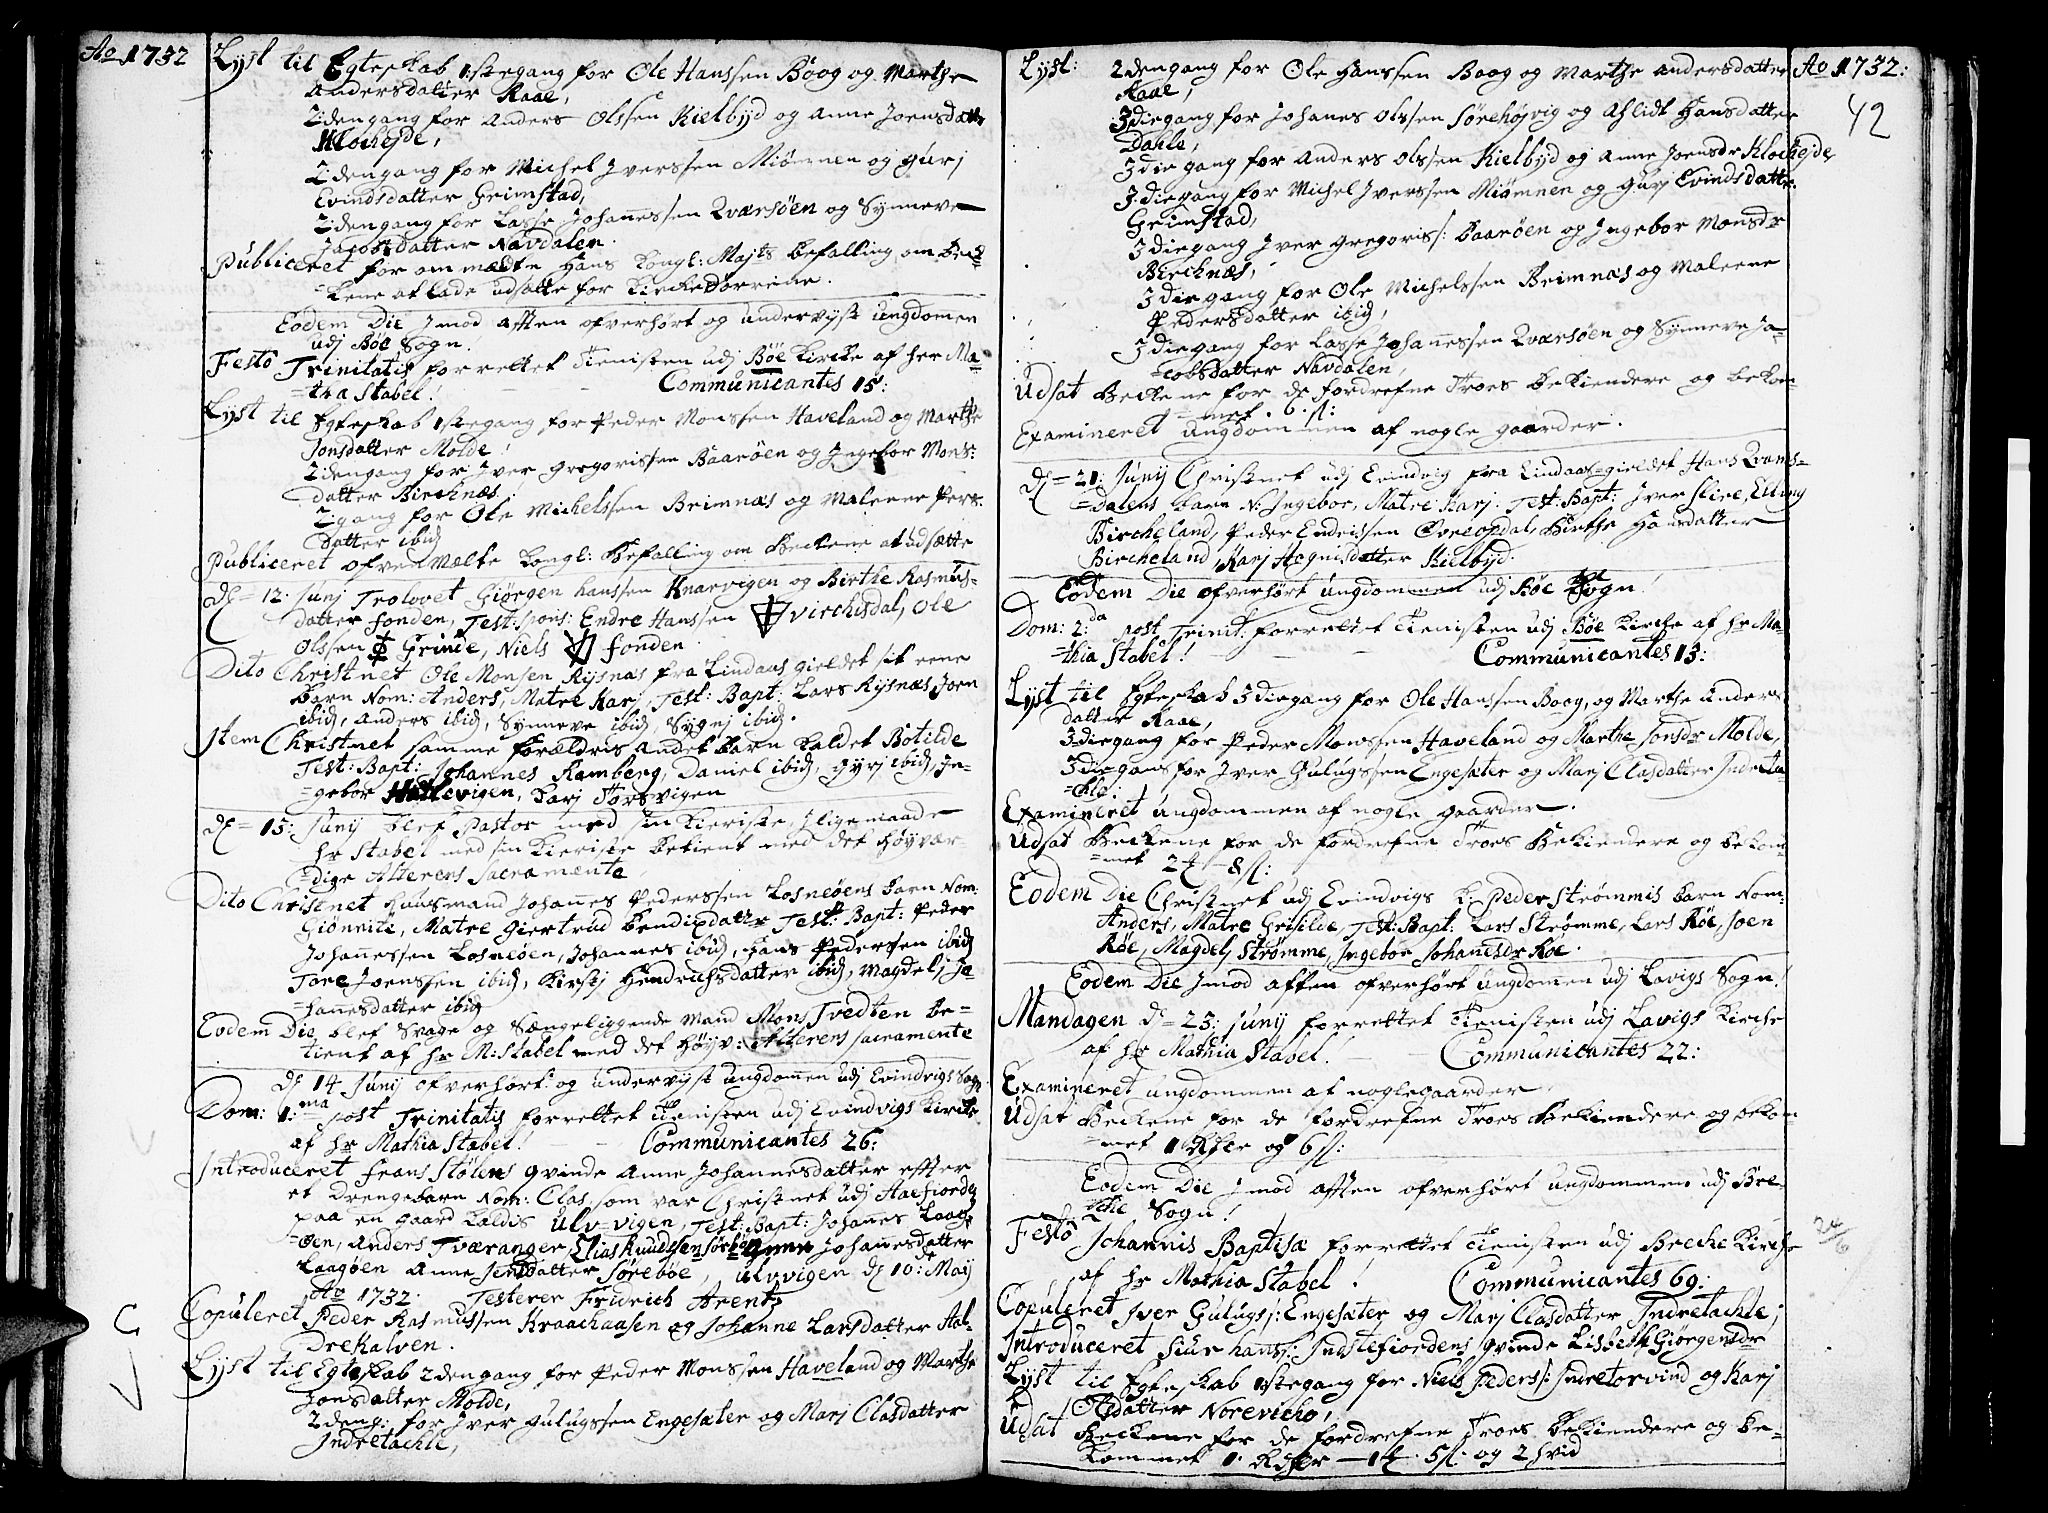 Ao 1732
Lyst til Egteskab 1stegang for Ole Hanssen Böog og Marthe
Andersdatter Raae,
2dengang for Anders Olssen Kielbyd og Anne Joensdatt:
Klocheide,
2:dengang for Michel Iverssen Miömnen og Gurj
Evindsdatter Grimstad,
2:dengang for Lasse Johanessen Qværsöen og Synneve
Jacobsdatter Navdalen.
Publiceret for om mælte Hans Kongl: Majts befalling om Bec-
kene at lade udsætte for Kirckedörrene.
Eodem Die Jmod afften ofverhört og undervjst ungdomen
udj Böe Sogn!
Festo Trinitatis forrettet Tienisten udj Böe Kircke af her Ma-
thia Stabel! Communicantes 15:
Lyst til Egteskab 1stegang for Peder Monssen Haveland og Marthe
Jonsdatter Molde!
2dengang for Iver Gregorissen Baaröen og Ingebor Mons:
datter Bircknæs.
2:gang for Ole Michelssen Brimnæs og Maleene Peers:
datter ibid
Publiceret ofver Mælte Kongl: Befalling om Beckene at udsætte
D= 12. Junj Trolovet Giörgen Hanssen Knarvigen og Birthe Rasmus-
datter Fonden, Test: Spons: Endre Hanssen Virchisdal, Ole
Olssen Grinde, Niels Fonden
Dito Christnet Ole Monsen Rysnæs fra Lindaas gieldet sit eene
Barn Nom: Anders, Matre Karj, Test: Bapt: Lars Rysnæs, Joen
ibid, Anders ibid, Synneve ibid, Sygnj ibid.
Item Christnet samme Forældris andet Barn kaldet Botilde
Test: Bapt: Johannes Ramberg, Daniel ibid, Gyrj ibid, In-
gebor Hattevigen, Karj Torsvigen
D= 15: Junij blef Pastor med sin Kieriste, Iligemaade
Hr Stabel med sin Kieriste betient med det Höyvær-
dige Alterens Sacramente,
Dito Christnet Huusmand Johanes Pederssen Losneöens barn Nom:
Giönnite, Matre Giertrud Bendixdatter Test: Bapt: Peder
Johanessen Losneöen, Johannes ibid, Hans Pederssen ibid
Tore Ivenssen ibid, Kirstj Hendrichsdatter ibid, Magdelj Jo-
hanesdatter ibid
Eodem Die blef Svage og Sængeliggende Mand Mons Tvedten be-
tient af Hr M: Stabel med det Höyv: Alterens Sacramente
D 14 Junij ofverhört og undervjst ungdomen udj Evindvigs Sogn
Dom: 1:ma post Trinitatis forrettet Tienisten udj Evindvigs Kircke
af Hr Mathia Stabel! Communicantes 26:
Introduceret Frans Stölens qvinde Anne Johannesdatter effter
et Drengebarn Nom: Clas, som var Christnet udj Aaefiorden
paa en gaard kaldis Ulv=vigen, Test: Bapt: Johanes Laag-
öen, Anders Tværanger, Elias Knudssen Sörböe, Johanesdatter
Laagöen Anne Jensdatter Söreböe, Ulvvigen D 10: Maij
Ao 1732. Testerer Fridrich Arentz
Copuleret Peder Rasmussen Kraachaasen og Johanne Larsdatter Aal-
Drekalven.
Lyst til Egteskab 2dengang for Peder Monssen Haveland og Marthe
Jonsdatter Molde,
2deng: for Iver Gulugssen Engesæter og Marj Clasdatter
Indretachle,
Ao 1732:
42
Lyst: 2dengang for Ole Hanssen Boog og Marthe Andersdatter
Raae,
3diegang for Johanes Olssen Sörehöjvig og Aslidt Hansdatter
Dahle,
3die gang for Anders Olssen Kielbyd og Anne Joensdr Klocheide
3diegang for Michel Iverssen Miömnen og Gurj Evindsdatter
Grimstad,
3diegang Iver Gregoris: Baaröen og Ingebor Monsdr
Bircknæs,
3die gang for Ole Michelssen Brimnæs og Maleene
Pedersdatter ibid,
3diegang for Lasse Johanessen Qværsöen og Synneve Ja-
cobsdatter Navdalen,
Udsat Beckene for de fordrefne Troes bekiendere og bekom-
met . 6 . sl:
Examineret ungdommen af nogle gaarder.
D= 21: Junij Christnet udj Evindvig fra Lindaas=gieldet Hans Qvams-
dalens barn N: Ingebor, Matre Karj. Test: Bapt: Iver Skire, Elling
Bircheland, Peder Endrissen Övreopdal, Birthe Hansdatter
Bircheland, Karj Hognisdatter Kielbyd.
Eodem Die ofverhört ungdommen udj Böe Sogn!
Dom: 2:da post Trinit: forrettet Tienisten udj Böe Kirche af Hr Ma-
thia Stabel! Communicantes 13:
Lyst til Egteskab 3diegang for Ole Hanssen Boog, og Marthe Anders
datter Raae,
3diegang for Peder Monssen Haveland og Marthe Jonsdr Molde,
3diegang for Iver Gulugssen Engesæter og Marj Clasdatter Indreta-
chle:
Examineret ungdommen af nogle gaarder.
Udsat Beckene for de fordrefne Troes Bekiendere og bekom-
met 2 8 sl:
Eodem Die Christnet udj Evindvigs K: Peder Strömmis barn Nom:
Anders, Matre Gitilde, Test: Bapt: Lars Strömme, Lars Röe, Joen
Röe, Magdelj Strömme, Ingebor Johanesdr Röe.
Eodem Die Jmod afften ofverhört ungdomen udj Lavigs Sogn!
Mandagen D= 23: Junij forrettet Tienisten udj Lavigs Kirche
af Hr Mathia Stabel! Communicantes 22:
Examineret ungdommen af noglegaarder
Udsat Beckene for de fordrefne Troes Bekiendere og bekom-
met 1 Rdler og 6 sl:
Eodem Die Jmod afften ofverhört ungdommen udj Bre-
che Sogn!
Festo Johannis Baptisæ forrettet Tienisten udj Breche Kirche
24/6
af Hr Mathia Stabel! Communicantes 69:
Copuleret Iver Gulugs: Engesæter og Marj Clasdatter Indretachle;
Introduceret Siur Hans: Indstefiordens qvinde Lisbet Giörgensdr
Lyst til Egteskab 1stegang for Niels Peders: Indretorvind og Karj
datter Norevicho,
Udsat Beckene for de fordrefne Troes bekiendere og be-
kommet 1. Rdler 1 . 5 sl. og 2 hvid